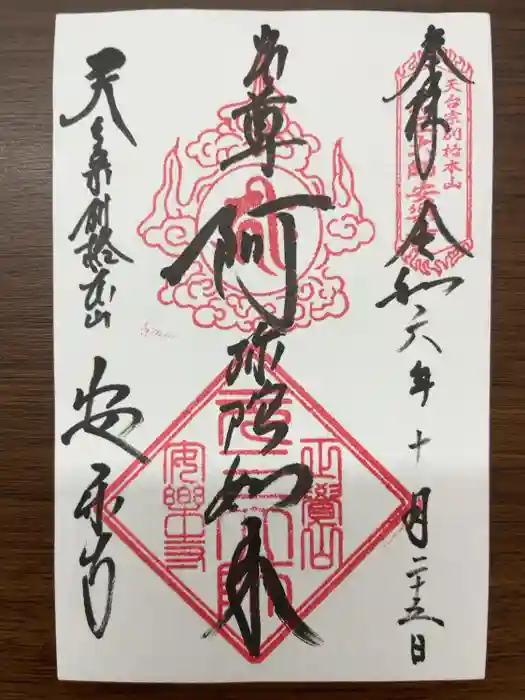 奉拝
令和六年十月二十五日
天台宗別格本山
本尊
阿弥陀如来
正覺山
安樂寺
天台宗別格本山
安楽寺